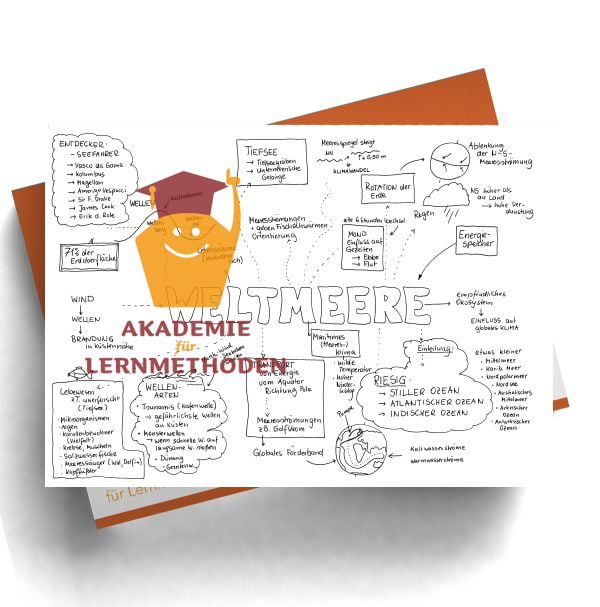 ENTDECKER:
- SEEFAHRER
→ Vasco da Gama
→ Kolumbus
→ Magellan
→ Amerigo Vespucci
→ Sir F. Drake
→ James Cook
→ Erik d. Rote
71% der
Erdoberfläche
WELLEN
TIEFSEE
→ Tiefseegräben
→ Unterseeische
Gebirge
Meeresspiegel steigt
NN
KLIMAWANDEL
ROTATION der
Erde
Ablenkung
der N-S-
Meeresströmung
Regen
NS höher als
an Land
→ hohe Ver-
dunstung
Meeresströmungen
Orientierung
alle 6 Stunden Wechsel
MOND
Einfluss auf
Gezeiten
→ Ebbe
→ Flut
Energie-
speicher
WELTMEERE
WIND
WELLEN
BRANDUNG
in Küstennähe
empfindliches
Ökosystem
EINFLUSS auf
globales KLIMA
AKADEMIE
für
LERNMETHODEN
Lebewesen
z.T. unerforscht
(Tiefsee)
• Mikroorganismen
• Algen
• Korallenbewohner
(Vielfalt)
• Krebse, Muscheln
• Salzwasserfische
• Meeressäuger (Wal, Delfin)
• Kopffüßler
WELLEN-
ARTEN
• Tsunamis (Hafenwelle)
→ gefährlichste Wellen
an Küsten
• Monsterwellen
→ wenn schnelle W. auf
langsame W. stoßen
• Dünung
TRANSPORT
von Energie
vom Äquator
Richtung Pole
Meeresströmungen
z.B. Golfstrom
Globales Förderband
Maritimes
(Meeres-)
Klima
milde
Temperatur
hoher
Nieder-
schlag
Pumpe
Einteilung:
RIESIG:
→ STILLER OZEAN
→ ATLANTISCHER OZEAN
→ INDISCHER OZEAN
etwas kleiner
• Mittelmeer
• Karib. Meer
• Nordpolarmeer
• Nordsee
• Arktischer
Ozean
• Antarktischer
Ozean
Kaltwasserströme
Warmwasserströme
für Lern